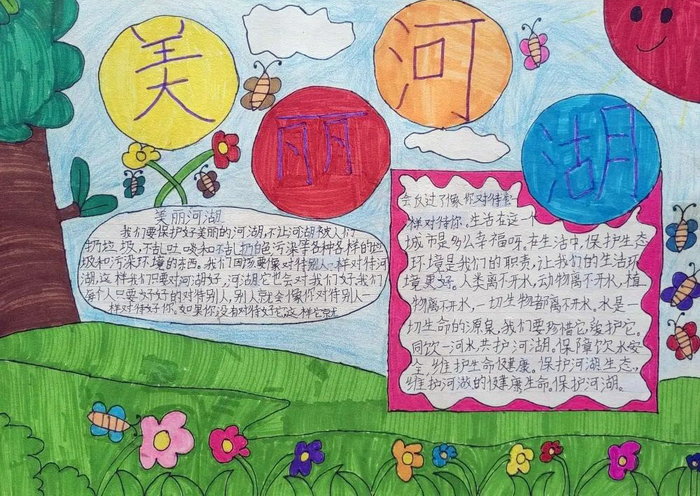 美丽河湖
美丽河湖
我们要保护好美丽的河湖,不让河湖被人们
扔垃圾,不乱吐痰和不乱扔的污染等各种各样的垃
圾和污染环境的东西。我们应该要像对待别人一样对待河
湖,这样我们只要对河湖好,河湖它也会对我们好,我们
每个人只要好好的对待别人,别人就会像你对待别人一
样对待好你。如果你没有对待好它,这样它就
会反过了像你对待它一
样对待你,生活在这一个
城市是多么幸福呀,在生活中,保护生态
环境是我们的职责,让我们的生活环
境更好。人类离不开水,动物离不开水,植
物离不开水,一切生物都离不开水。水是一
切生命的源泉,我们要珍惜它,爱护它。
同饮一河水共护河湖。保障饮水安
全,维护生命健康。保护河湖生态,
维护河流的健康生命。保护河湖。